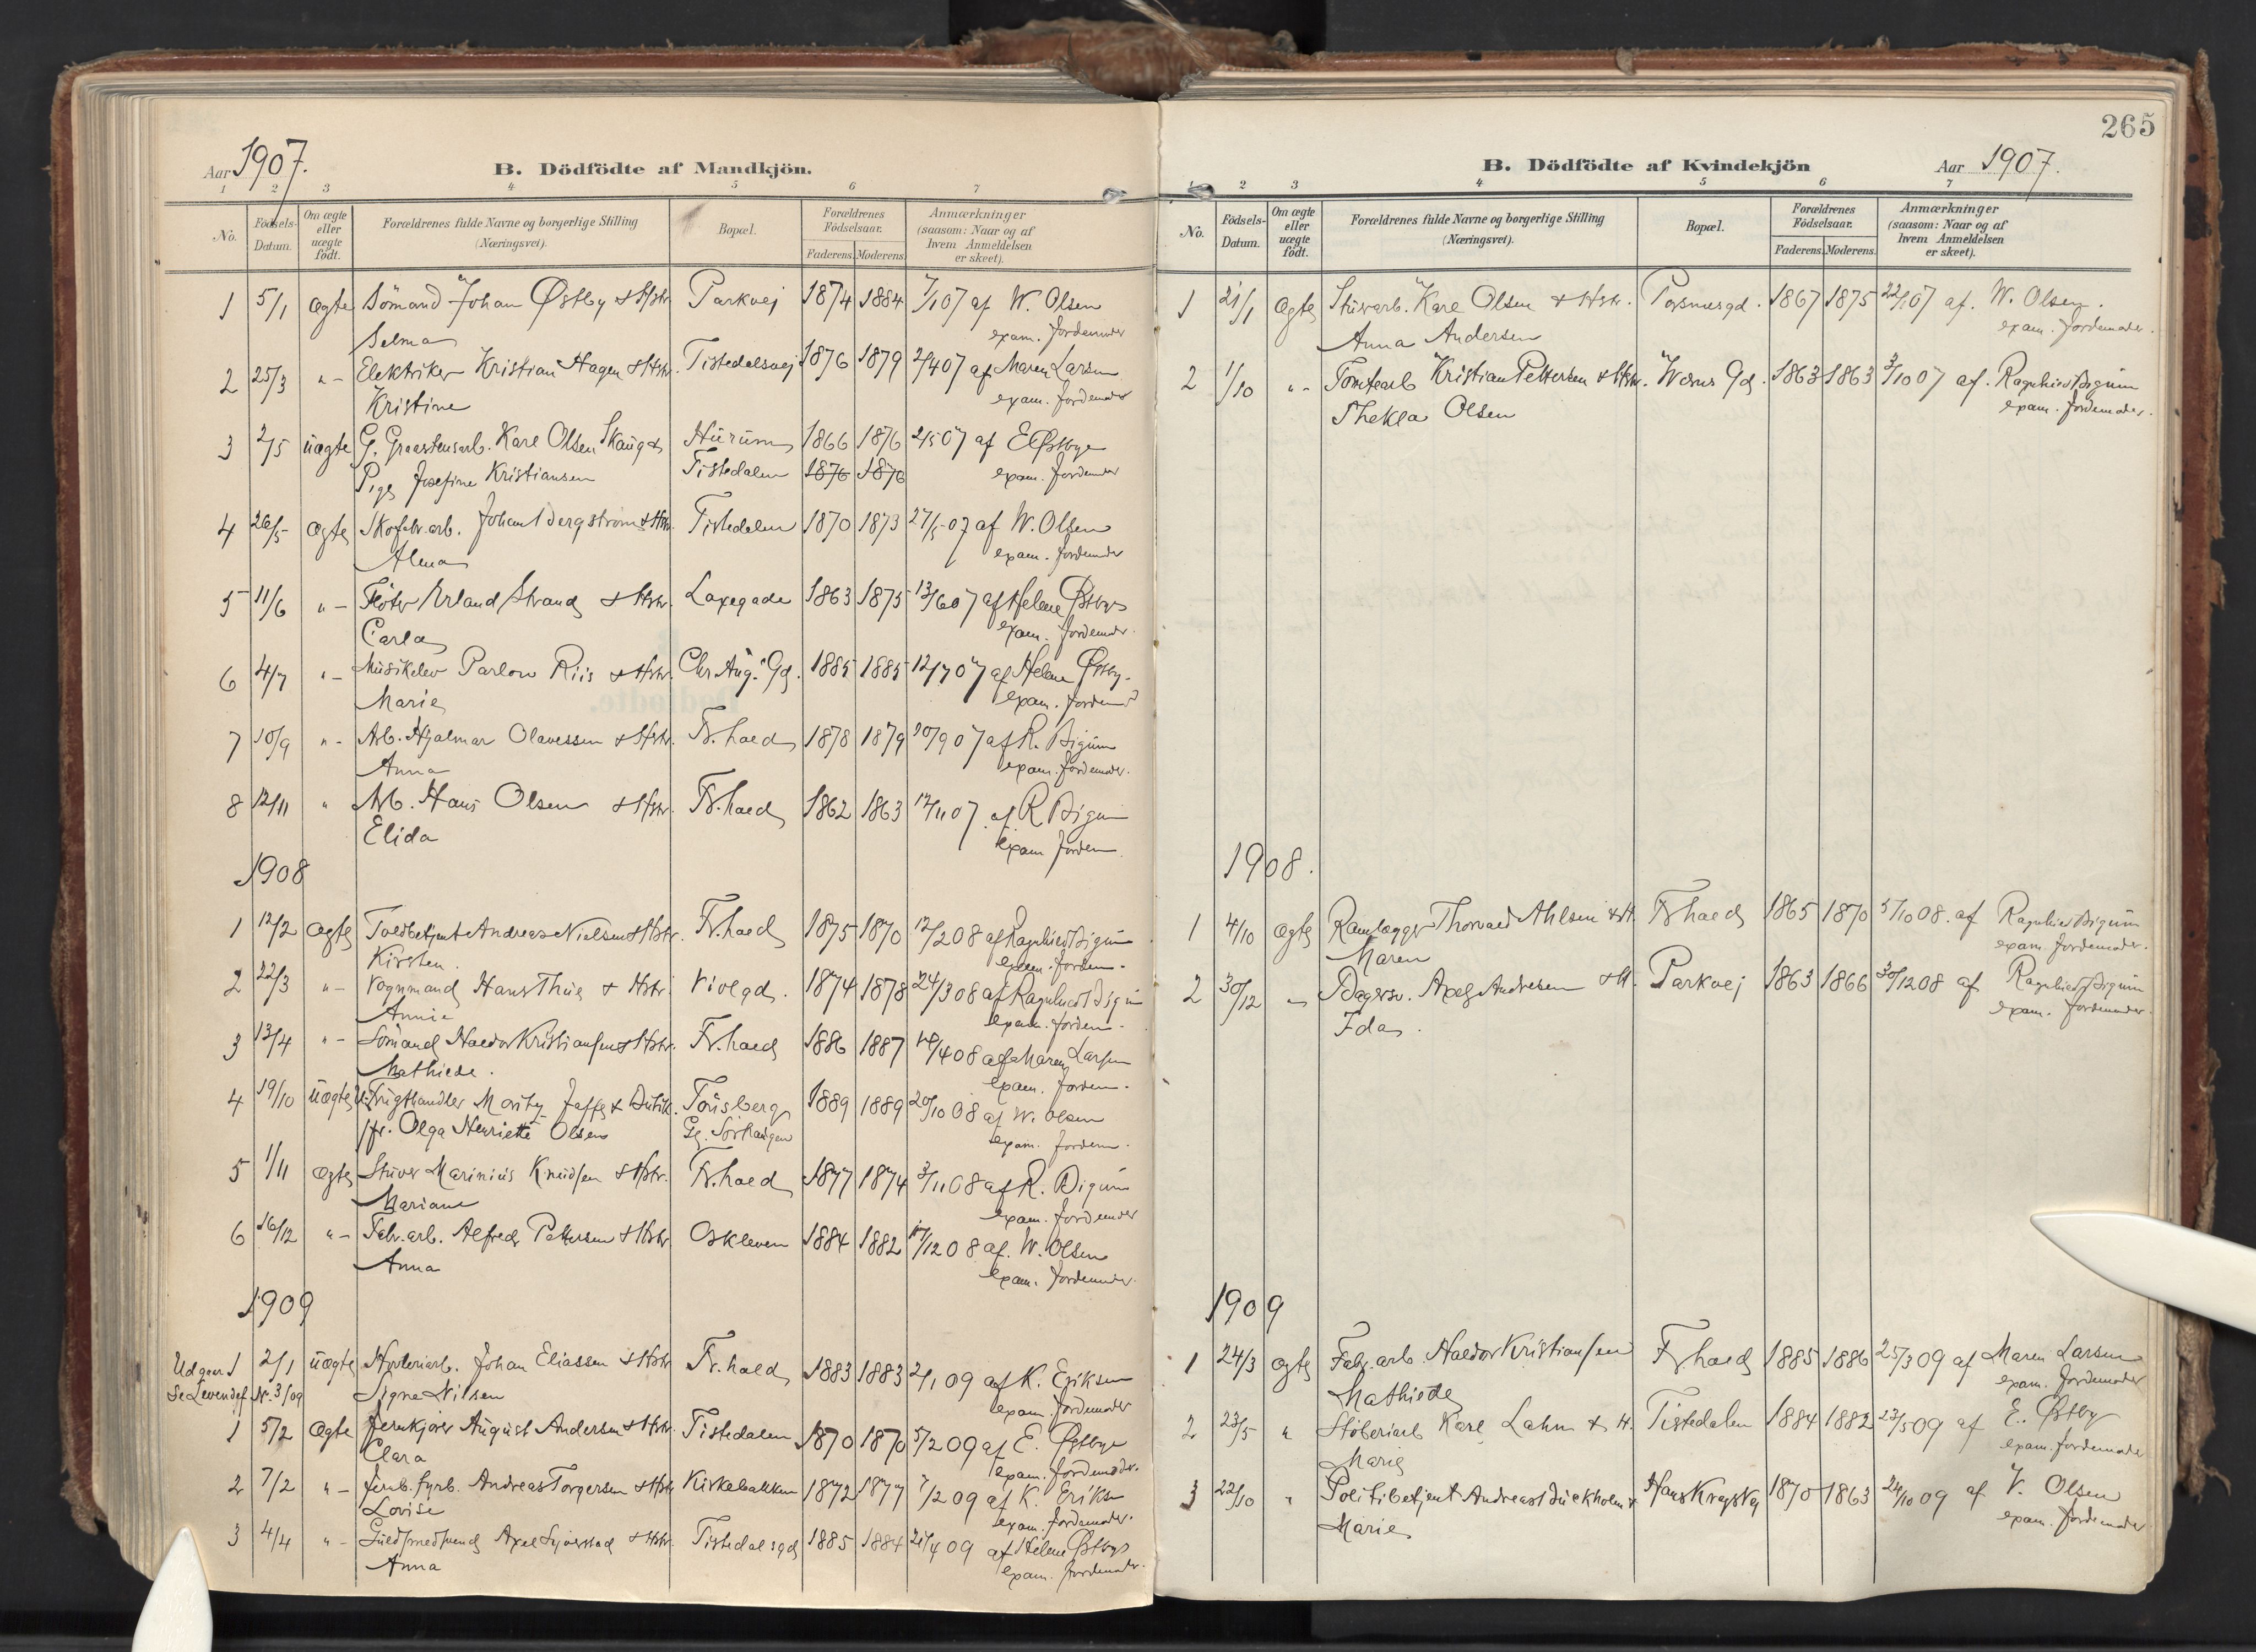 Aar 1907.
B. Dödfödte af Mandkjön.
1 2 3 4 5 6 7
No.
Födsels-Datum.
Om ægte eller uægte födt.
Forældrenes fulde Navne og borgerlige Stilling (Næringsvei).
Bopæl.
Forældrenes Födselsaar.
Faderens. Moderens.
Anmærkninger (saasom: Naar og af hvem Anmeldelsen er skeet).
1 5/1 ægte Sömand Johan Østby & Hstr. Parkvej 1874 1884 7/1 07 af W. Olsen
Selma exam. Jordemoder
2 25/3 "- Elektriker Kristian Hagen & Hstr. Tistedalsvej 1876 1879 2/4 07 af Maren Larsen
Kristine exam. Jordemoder
3 2/5 uægte G. Graastensarb. Karl Olsen Skaug & Hurum 1866 1876 2/5 07 af E Østbye
Pige Josefine Kristiansen Tistedalen 1876 1876 exam. Jordemoder
4 26/5 ægte Skofabr.arb. Johan Bergström & Hstr. Tistedalen 1870 1873 27/5 07 af W. Olsen
Alma exam. Jordemoder
5 11/6 "- Flöter Erland Strand & Hstr. Laxegade 1863 1875 13/6 07 af Helene Østbye
Carla exam. Jordemoder.
6 4/7 "- Musikelev Parlow Riis & Hstr. Chr Aug. Gd. 1885 1885 12/7 07 af Helene Østby.
Marie exam. Jordemd
7 10/9 "- Arb. Hjalmar Olavessen & Hstr. Fr.hald 1878 1879 10/9 07 af R. Bigum
Anna exam. Jordemoder.
8 12/11 " Arb. Hans Olsen & Hstr. Fr.hald 1862 1863 12/11 07 af R Bigum
Elida exam Jordem.
1908
1 12/2 ægte Toldbetjent Andreas Nielsen & Hstr. Fr.hald 1875 1870 12/2 08 af Ragnhild Bigum
Kirsten. exam. Jordem.
2 22/3 "- Vognmand Hans Thue & Hstr. Violgd. 1874 1878 24/3 08 af Ragnhild Bigum
Annie exam. Jordem.
3 13/4 "- Sömand Haldor Kristiansen & Hstr. Fr.hald 1886 1887 14/4 08 af Maren Larsen
Mathilde. exam. Jordem.
4 19/10 uægte Frugthandler Moritz Jaffe & Butik. Tönsberg 1889 1889 20/10 08 af W. Olsen
jfr. Olga Henriette Olsen exam. Jordem.
5 1/11 ægte Stuver Marinius Knudsen & Hstr. Fr.hald 1877 1874 3/11 08 af R. Bigum
Mariane exam. Jordemoder
6 16/12 "- Fabr.arb. Alfred Pettersen & Hstr. Oskleven 1884 1882 17/12 08 af. W. Olsen
Anna exam. Jordemoder.
1909
Udgaar 1 2/1 uægte Hövleriarb. Johan Eliassen & Hstr. Fr.hald 1883 1883 2/1 09 af K. Eriksen
Se Levendef. No. 3/09 Signe Nilsen exam. Jordemoder
1 5/2 ægte Jernkjörer August Andersen & Hstr. Tistedalen 1870 1870 5/2 09 af E. Østbye
Clara exam. Jordemoder.
2 7/2 "- Jernb.fyrb. Andreas Torgersen & Hstr Kirkebakken 1872 1877 7/2 09 af K. Eriksen
Lovise exam. Jordemoder.
3 4/4 "- Guldsmedsvend Axel & Hstr. Tistedalsgd 1885 1884 21/4 09 af Helene Østbye
Anna exam. Jordemoder.
265
B. Dödfödte af Kvindekjön
Aar 1907.
1 2 3 4 5 6 7
No.
Födsels-Datum.
Om ægte eller uægte födt.
Forældrenes fulde Navne og borgerlige Stilling (Næringsvei).
Bopæl.
Forældrenes Födselsaar.
Faderens. Moderens.
Anmærkninger (saasom: Naar og af hvem Anmeldelsen er skeet).
1 21/1 ægte Stuvarb. Karl Olsen & Hstr. 1867 1875 22/1 07 af. W. Olsen.
Anna Andersen exam. Jordemoder.
2 1/10 "- Tomtearb Kristian Pettersen & Hstr. Værns Gd. 1863 1863 3/10 07 af. Ragnhild Bigum
Thekla Olsen exam. Jordemoder.
1908.
1 4/10 ægte Ramlægger Thorvald Ahlsen & H. Frhald 1865 1870 5/10 08. af Ragnhild Bigum
Maren exam. Jordemoder.
2 30/12 "- Bagersv. Axel Andresen & H. Parkvej 1863 1866 30/12 08 af Ragnhild Bigum
Ida. exam. Jordemoder.
1909
1 24/3 ægte Fabr.arb. Haldor Kristiansen Frhald 1885 1886 25/3 09 af Maren Larsen
Mathilde exam. Jordemoder
2 23/5 " Stöberiarb Karl Lahm & H. Tistedalen 1884 1882 23/5 09 af E. Østby
Marie exam. Jordemoder
3 22/10 " Politibetjent Andreas Buckholm & Hans Kragsvg 1870 1863 24/10 09 af V. Olsen
Marie exam. Jordemoder